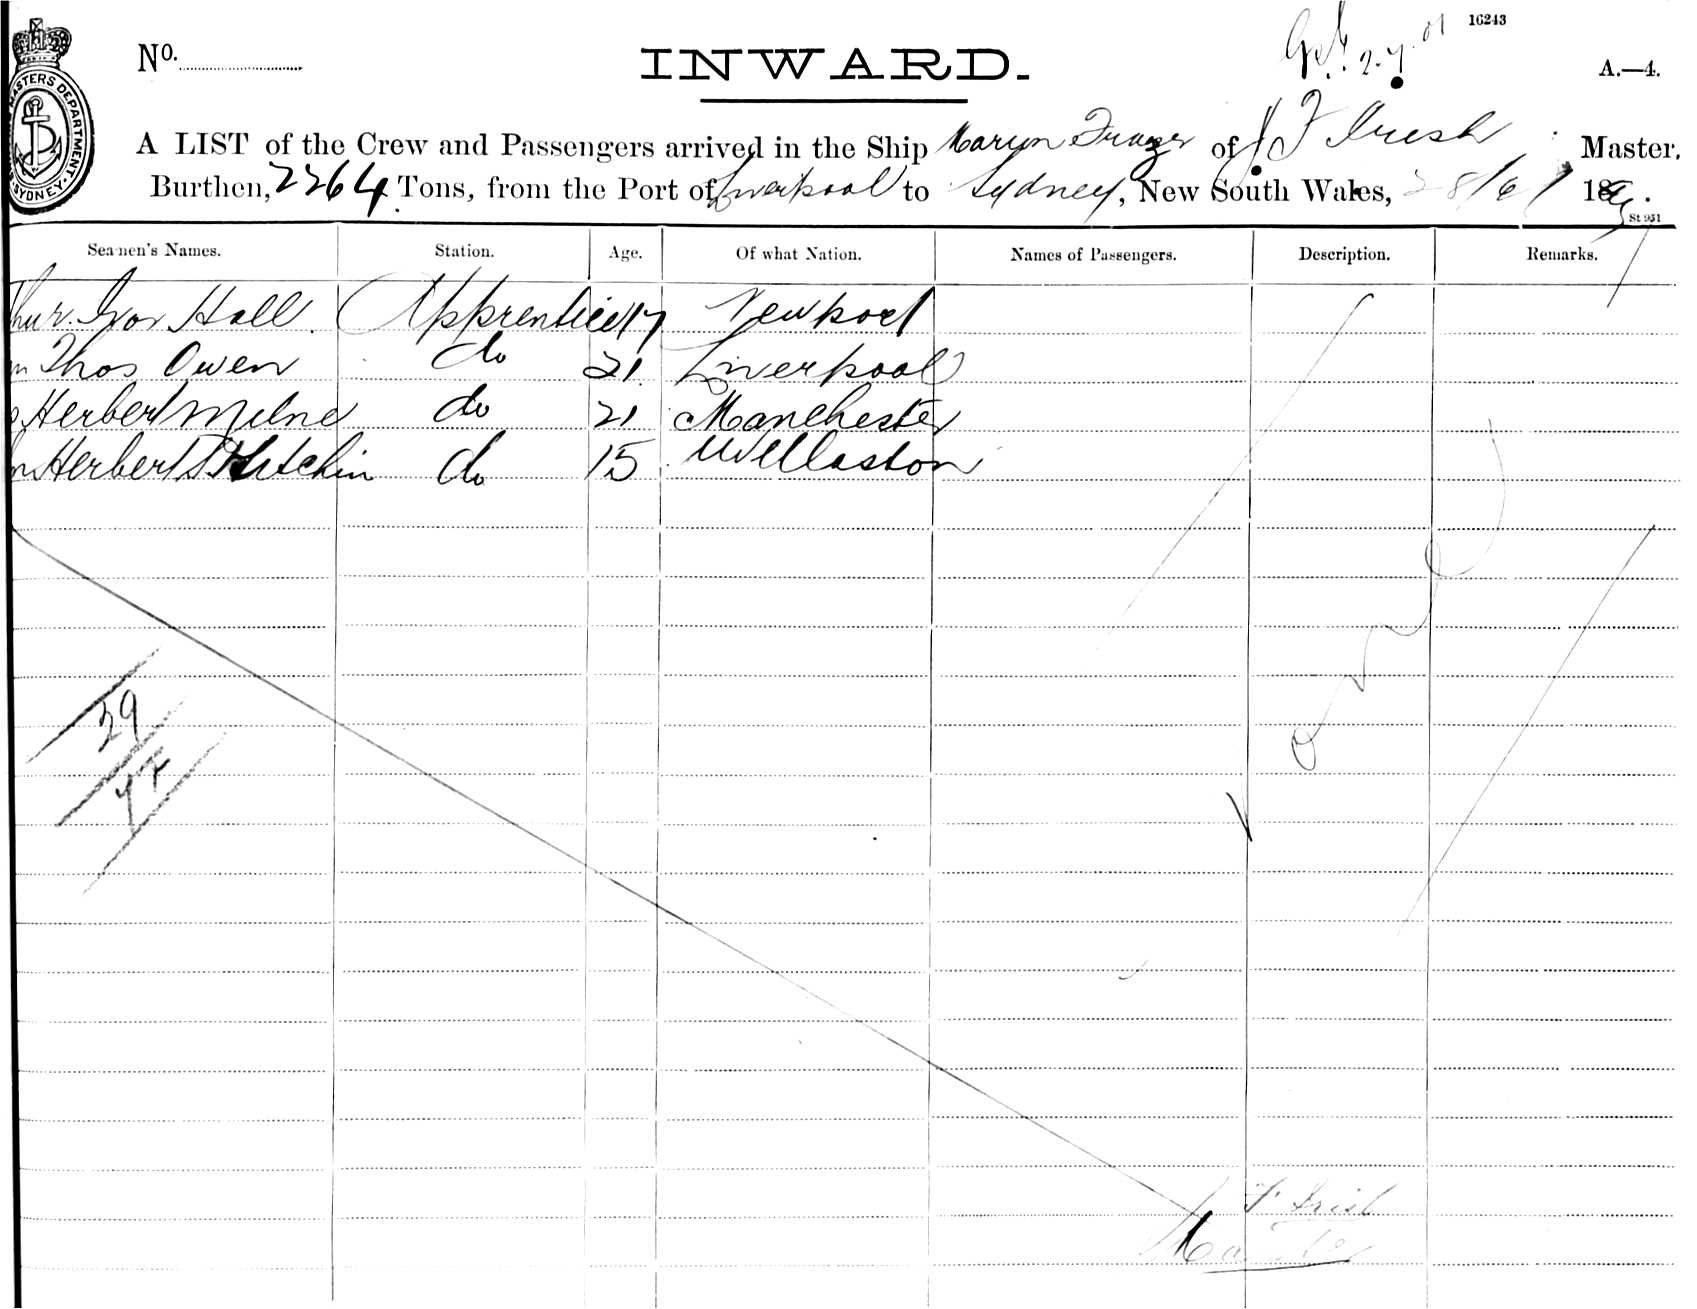 16243
2.7.01
No.
INWARD.
A.—4.
MASTERS DEPARTMENT. SYDNEY.
A LIST of the Crew and Passengers arrived in the Ship Marion Frazer of J F Irish Master,
Burthen, 2264 Tons, from the Port of Liverpool to Sydney, New South Wales, 28/6/ 18
St 951
Seamen's Names. Station. Age. Of what Nation. Names of Passengers. Description. Remarks.
thur Ivor Hall. Apprentice 17 Newport
m Thos Owen do 21 Liverpool
Herbert Milne do 21 Manchester
Herbert S Hutchin do 15 Willaston
39
F Irish
Master